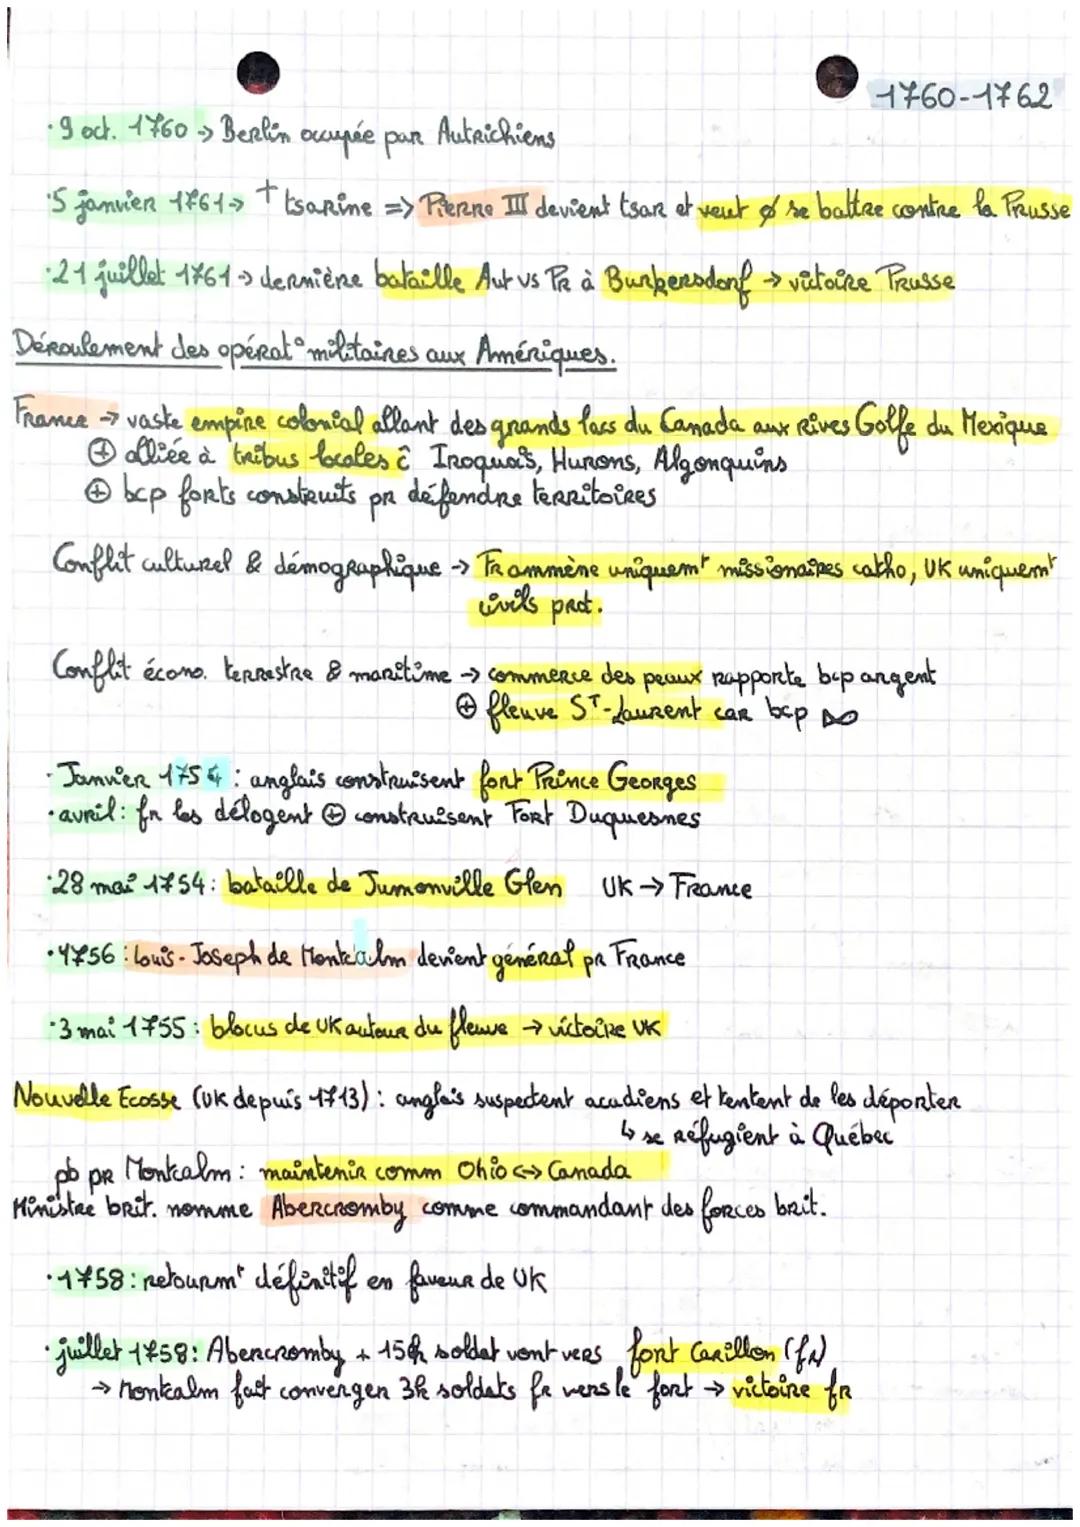 1760-1762
·9 oct. 1760 → Berlin occupée par Autrichiens
·5 janvier 1761 → † tsarine => Pierre III devient tsar et veut ø se battre contre la Prusse
·21 juillet 1761 → dernière bataille Aut vs Pr à Burkersdorf → victoire Prusse
Déroulement des opérat° militaires aux Amériques.
France → vaste empire colonial allant des grands lacs du Canada aux Rives Golfe du Mexique
⊕ alliée à tribus locales ĉ Iroquois, Hurons, Algonquins
⊕ bcp forts construits pr défendre territoires
Conflit culturel & démographique → Fr ammène uniquemt missionaires catho, UK uniquemt
civils prot.
Conflit écono. terrestre & maritime → commerce des peaux rapporte bcp argent
⊕ fleuve St-Laurent car bcp
· Janvier 1754 : anglais construisent fort Prince Georges
· avril : fr les délogent ⊕ construisent Fort Duquesnes
·28 mai 1754 : bataille de Jumonville Glen UK → France
·1756 : Louis-Joseph de Montcalm devient général pr France
·3 mai 1755 : blocus de UK autour du fleuve → victoire UK
Nouvelle Ecosse (UK depuis 1713) : anglais suspectent acadiens et tentent de les déporter
↳ se réfugient à Québec
pb pr Montcalm : maintenir comm Ohio <-> Canada
Ministre brit. nomme Abercromby comme commandant des forces brit.
·1758 : retournmt définitif en faveur de UK
· juillet 1758 : Abercromby + 15k soldat vont vers fort Carillon (fr)
→ Montcalm fait converger 3k soldats fr vers le fort → victoire fr